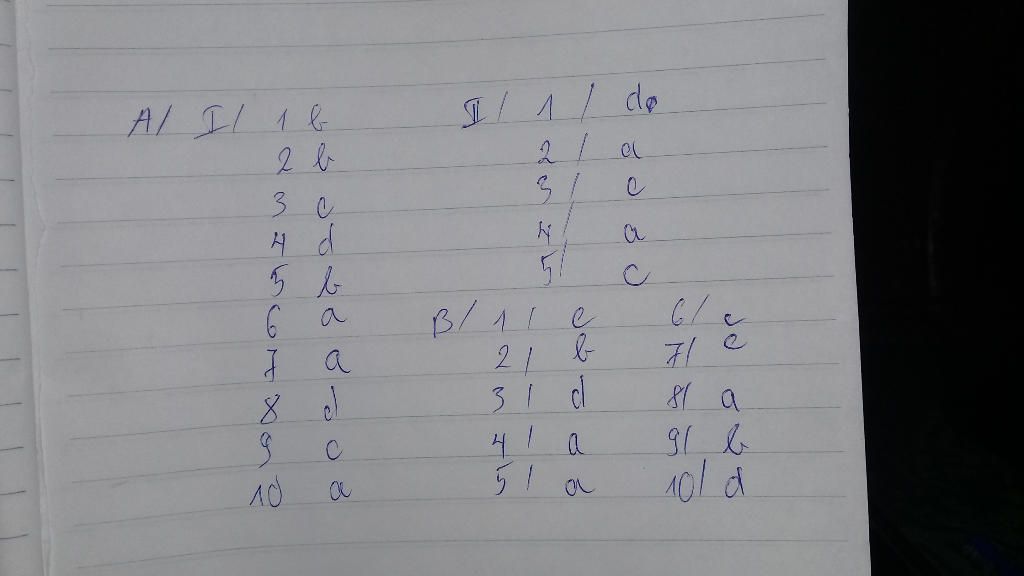 A/ I/ 1 b II/ 1 / d
2 b 2 / a
3 c 3 / c
4 d 4 / a
5 b 5 / c
6 a B/ 1 / c 6 / c
7 a 2 / b 7 / c
8 d 3 / d 8 / a
9 c 4 / a 9 / b
10 a 5 / a 10 / d